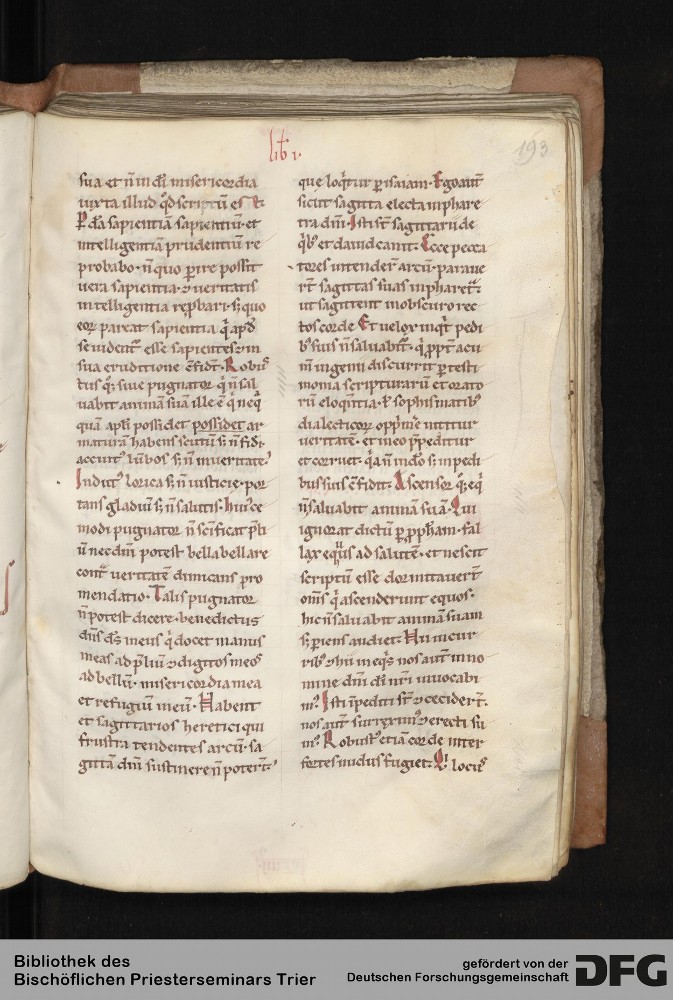 lib i.
193
sua et n̄ in dī misericordia
iuxta illud qd̄ scriptū est Et
ꝑdā sapientiā sapientiū· et
intelligentiā prudentiū re
probabo· n̄ quo ꝑire possit
uera sapientia· ⁊ ueritatis
intelligentia rep̄bari· s; quo
eoꝝ pareat sapientia q̄ apd̄
se uident᷒ esse sapientes· ⁊ in
sua eruditione c̄fidt̄· Robus
tus q;· siue pugnator q̄ n̄ sal
uabit animā suā ille ē q̄ neq̄
quā apl̄i possidet possidet ar
maturā habens scutū s; n̄ fidi·
accinct᷒ lūbos s; n̄ in ueritate·
Indut᷒ lorica s; n̄ iusticie· por
tans gladiū s; n̄ salutis· hui᷒ce
modi pugnator n̄ scificat p̄li
ū necdū potest bella bellare
cont̄ ueritatē dimicans pro
mendatio· Talis pugnator
n̄ potest dicere· benedictus
dn̄s ds̄ meus q̄ docet manus
meas ad p̄liū ⁊ digitos meos
ad bellū· misericordia mea
et refugiū meū· Habent
et sagittarios heretici qui
frustra tendentes arcū· sa
gittā dn̄i sustinere n̄ potert̄·
que loq̄tur ꝑ isaiam· Ego aut̄
sicut sagitta electa in phare
tra dn̄i· Isti st̄ sagittarii de
q̄b᷒ et dauid canit· Ecce pecca
tores intender̄t arcū· paraue
rt̄ sagittas suas in pharet̄·
ut sagittent in obscuro rec
tos corde Et uelox inq̄t pedi
b᷒ suis n̄ saluabit᷒· q̄ ꝓpt̄ acu
m̄ ingenii discurrit ꝑ testi
monia scripturarū et orato
rū eloq̄ntia· ł sophismatib᷒
dialecticoꝝ opp̄ime nititur
ueritatē· et ineo p̄peditur
et corruet· q̄a n̄ in dn̄o s; in pedi
bus suis c̄fidit· Ascensor q;· eq̄
n̄ saluabit animā suā· Qui
ignorat dictū ꝑ ꝓph̄am· fal
lax equus ad salutē· et nescit
scriptū esse dormitauert̄
om̄s q̄ ascenderunt equos·
hic n̄ saluabit animā suam
s; ꝑiens audiet· Hii in cur
rib᷒ ⁊ hii in eq̄s nos aut̄ in no
mine dn̄i dī nr̄i inuocabi
m᷒· Isti īpediti st̄ ⁊ cecidert̄·
nos aut̄ surreximus ⁊ erecti su
m᷒· Robust᷒ etiā corde inter
fortes nudus fugiet· Qi locūs
Bibliothek des
Bischöflichen Priesterseminars Trier
gefördert von der
Deutschen Forschungsgemeinschaft
DFG